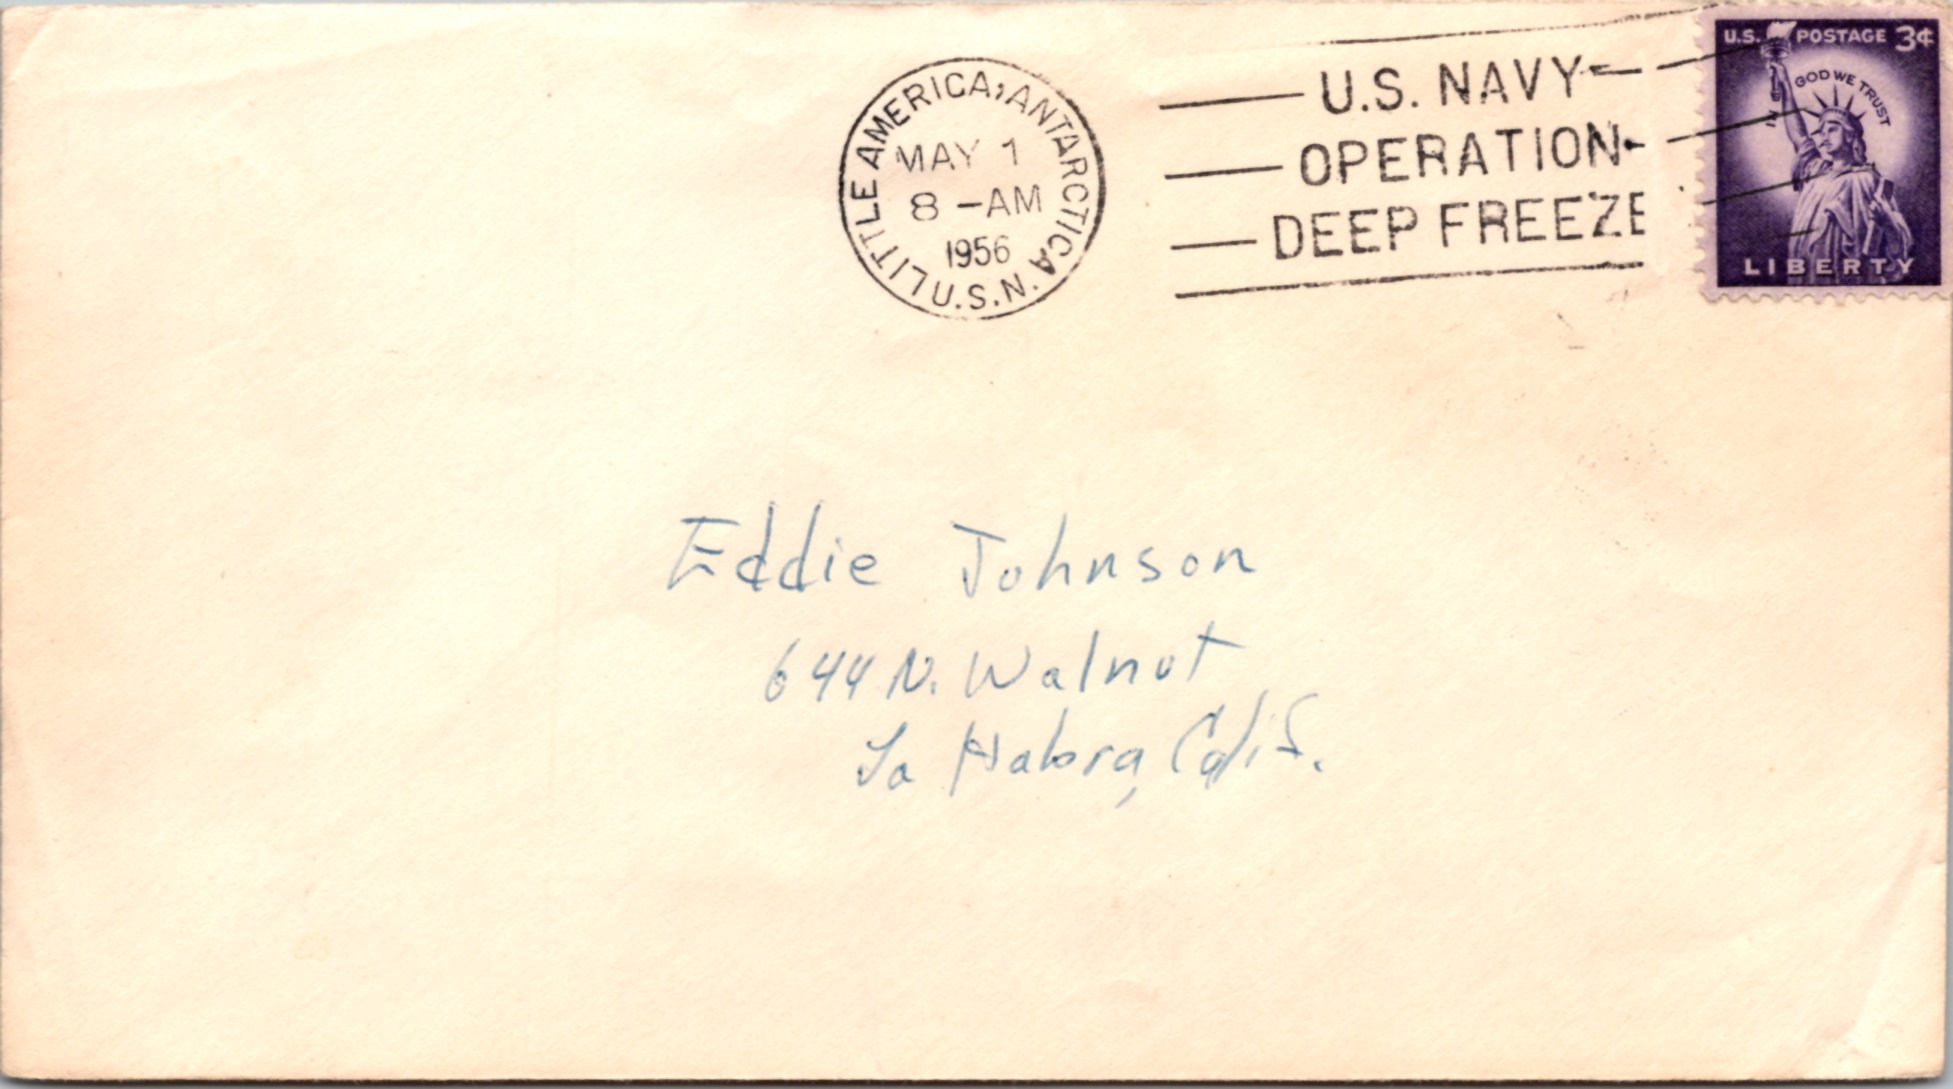 LITTLE AMERICA, ANTARCTICA U.S.N.
MAY 1
8 -AM
1956
U.S. NAVY
OPERATION
DEEP FREEZE
U.S. POSTAGE 3¢
IN GOD WE TRUST
LIBERTY
Eddie Johnson
644 N. Walnut
La Habra, Calif.